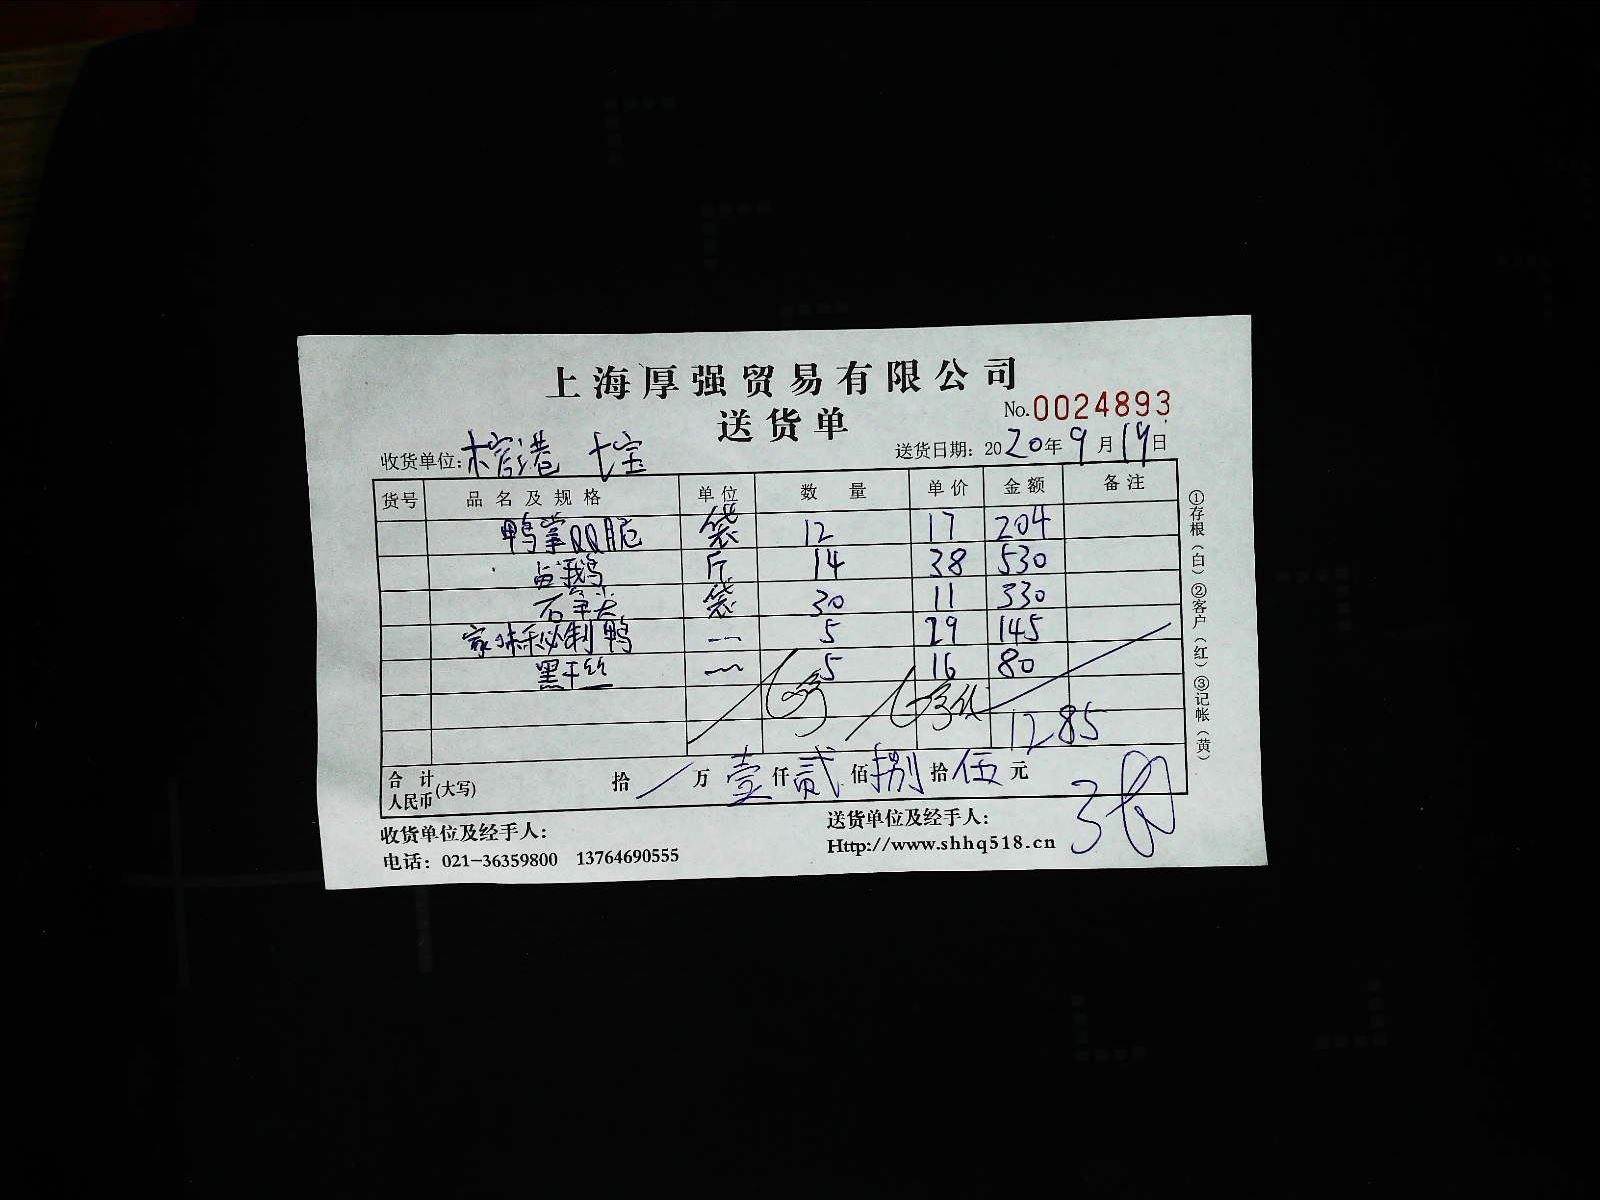 上海厚强贸易有限公司
送货单
No.0024893
收货单位: 七宝
送货日期: 2020年9月19日
货号 品名及规格 单位 数量 单价 金额 备注
鸭掌QQ脆 袋 12 17 204
卤鹅 斤 14 38 530
石笋尖 袋 30 11 330
家味秘制鸭 5 29 145
黑干丝 5 16 80
1285
合计人民币(大写) 拾 / 万 壹 仟 贰 佰 捌 拾 伍 元
收货单位及经手人:
送货单位及经手人:
电话: 021-36359800 13764690555
Http://www.shhq518.cn
①存根(白)②客户(红)③记帐(黄)